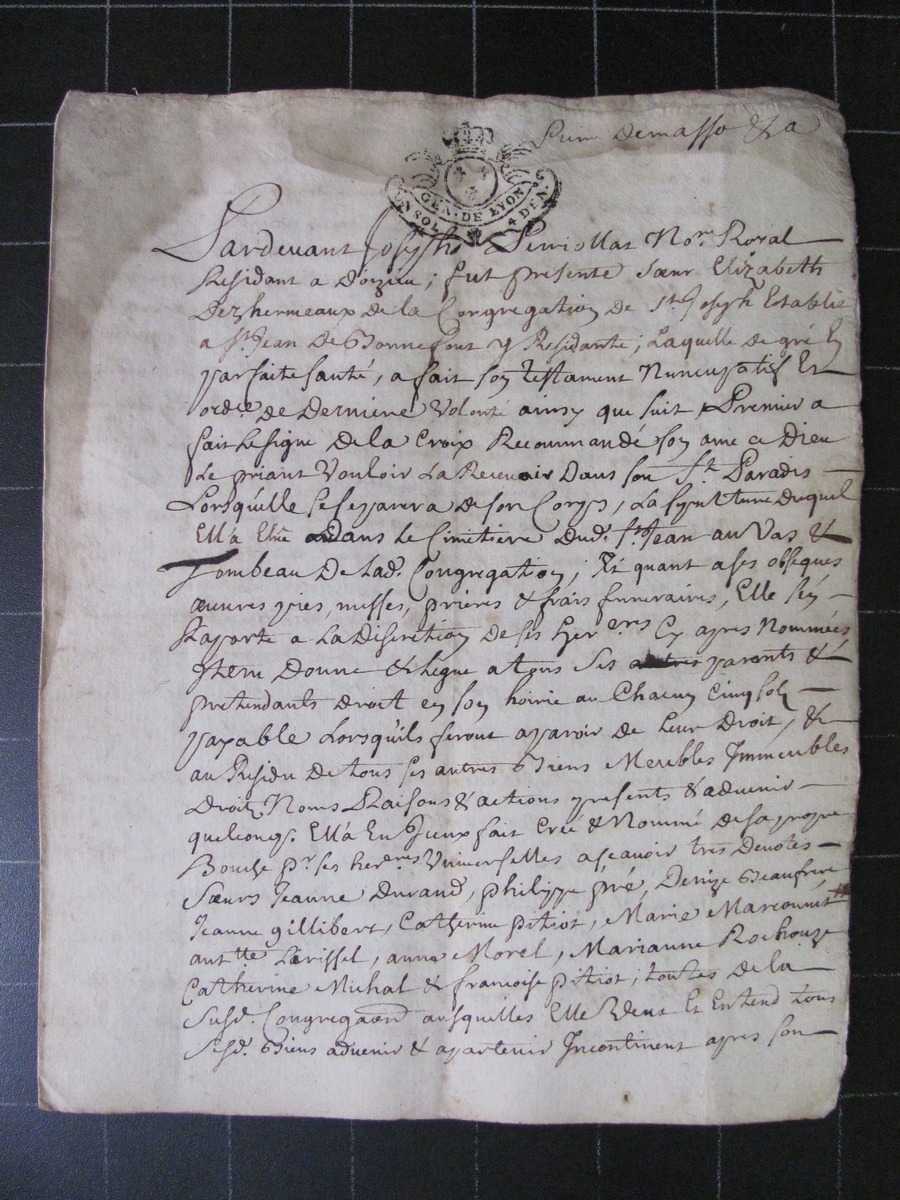 Demasso & a
GEN. DE LYON
UN SOL 4 DEN.
Pardevant Joseph Perriollat No.re Royal
Residant a Doizieu ; fut presente sœur Elizabeth
Dezhermeaux de la Congregation de St. Joseph Establie
a St. Jean De Bonnefont y Residante ; Laquelle de gré En
parfaite santé, a fait son Testament Nuncupatif Et
ord.e de Derniere Volonté ainsy que suit Premier a
fait Le signe De la Croix Recommandé son ame a Dieu
Le priant Vouloir La Recevoir Dans son St. Paradis
Lorsquille se separera de son Corps, La sepulture Duquel
Ell'a Elüe Dans Le Cimetière Dud. St. Jean au Vas &
Tombeau De Lad. Congregation ; Et quant a ses obseques
œuvres pies, messes, prières & frais funeraires, Elle s'en
Raporte a La Discretion De ses Her.ers Cy apres Nommées
Item Donne & Legue a Tous Ses autres parents &
pretendants Droit en son hoirie au Chacun Cinq sols
payable Lorsqu'ils feront aparoir de Leur Droit, &
au Residu De tous ses autres Biens Meubles Immeubles
Droits Noms Raisons & actions presents & advenir
quelconqs. Ell'a fait Créé & Nommé de sa propre
Bouche pr. ses her.eres Vniverselles a scavoir très Devotes
Sœurs Jeanne Durand, philippe pré, Denize Beaufrere
Jeanne gillibert, Catherine pitiot, Marie Marconnet
ant.tte Lerissel, anne Morel, Marianne Rochouze
Catherine Michal & francoise pitiot ; toutes de la
Susd. Congregaōn ausquelles Elle Veut Et Entend tous
Sesd. Biens advenir & apartenir Incontinent apres son